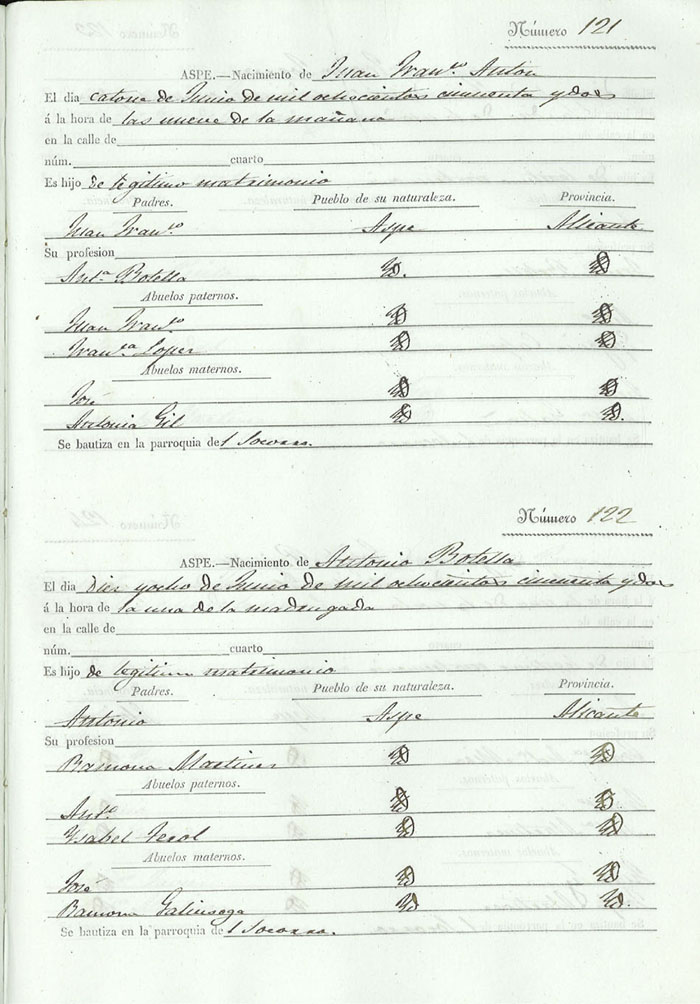 Número 121
ASPE.—Nacimiento de Juan Fran.co Anton
El dia catorse de Junio de mil ochocientos cincuenta y dos
á la hora de las nueve de la mañana
en la calle de
núm. cuarto
Es hijo de legitimo matrimonio
Padres. Pueblo de su naturaleza. Provincia.
Juan Fran.co Aspe Alicante
Su profesion
Ant.a Botella
Abuelos paternos.
Juan Fran.co
Fran.ca Lopez
Abuelos maternos.
José
Antonia Gil
Se bautiza en la parroquia del Socorro.
Número 122
ASPE.—Nacimiento de Antonio Botella
El dia diez y ocho de Junio de mil ochocientos cincuenta y dos
á la hora de la una de la madrugada
en la calle de
núm. cuarto
Es hijo de legitimo matrimonio
Padres. Pueblo de su naturaleza. Provincia.
Antonio Aspe Alicante
Su profesion
Ramona Martinez
Abuelos paternos.
Ant.o
Ysabel
Abuelos maternos.
José
Ramona Galinsoga
Se bautiza en la parroquia del Socorro.